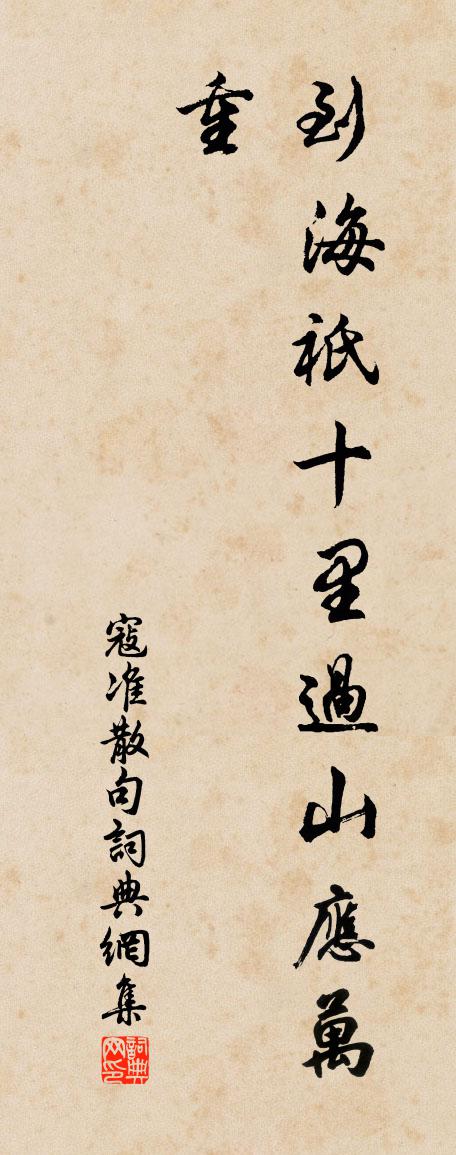 到海祇十里過山應萬
重
寇准散句詞典網集
詞典网印